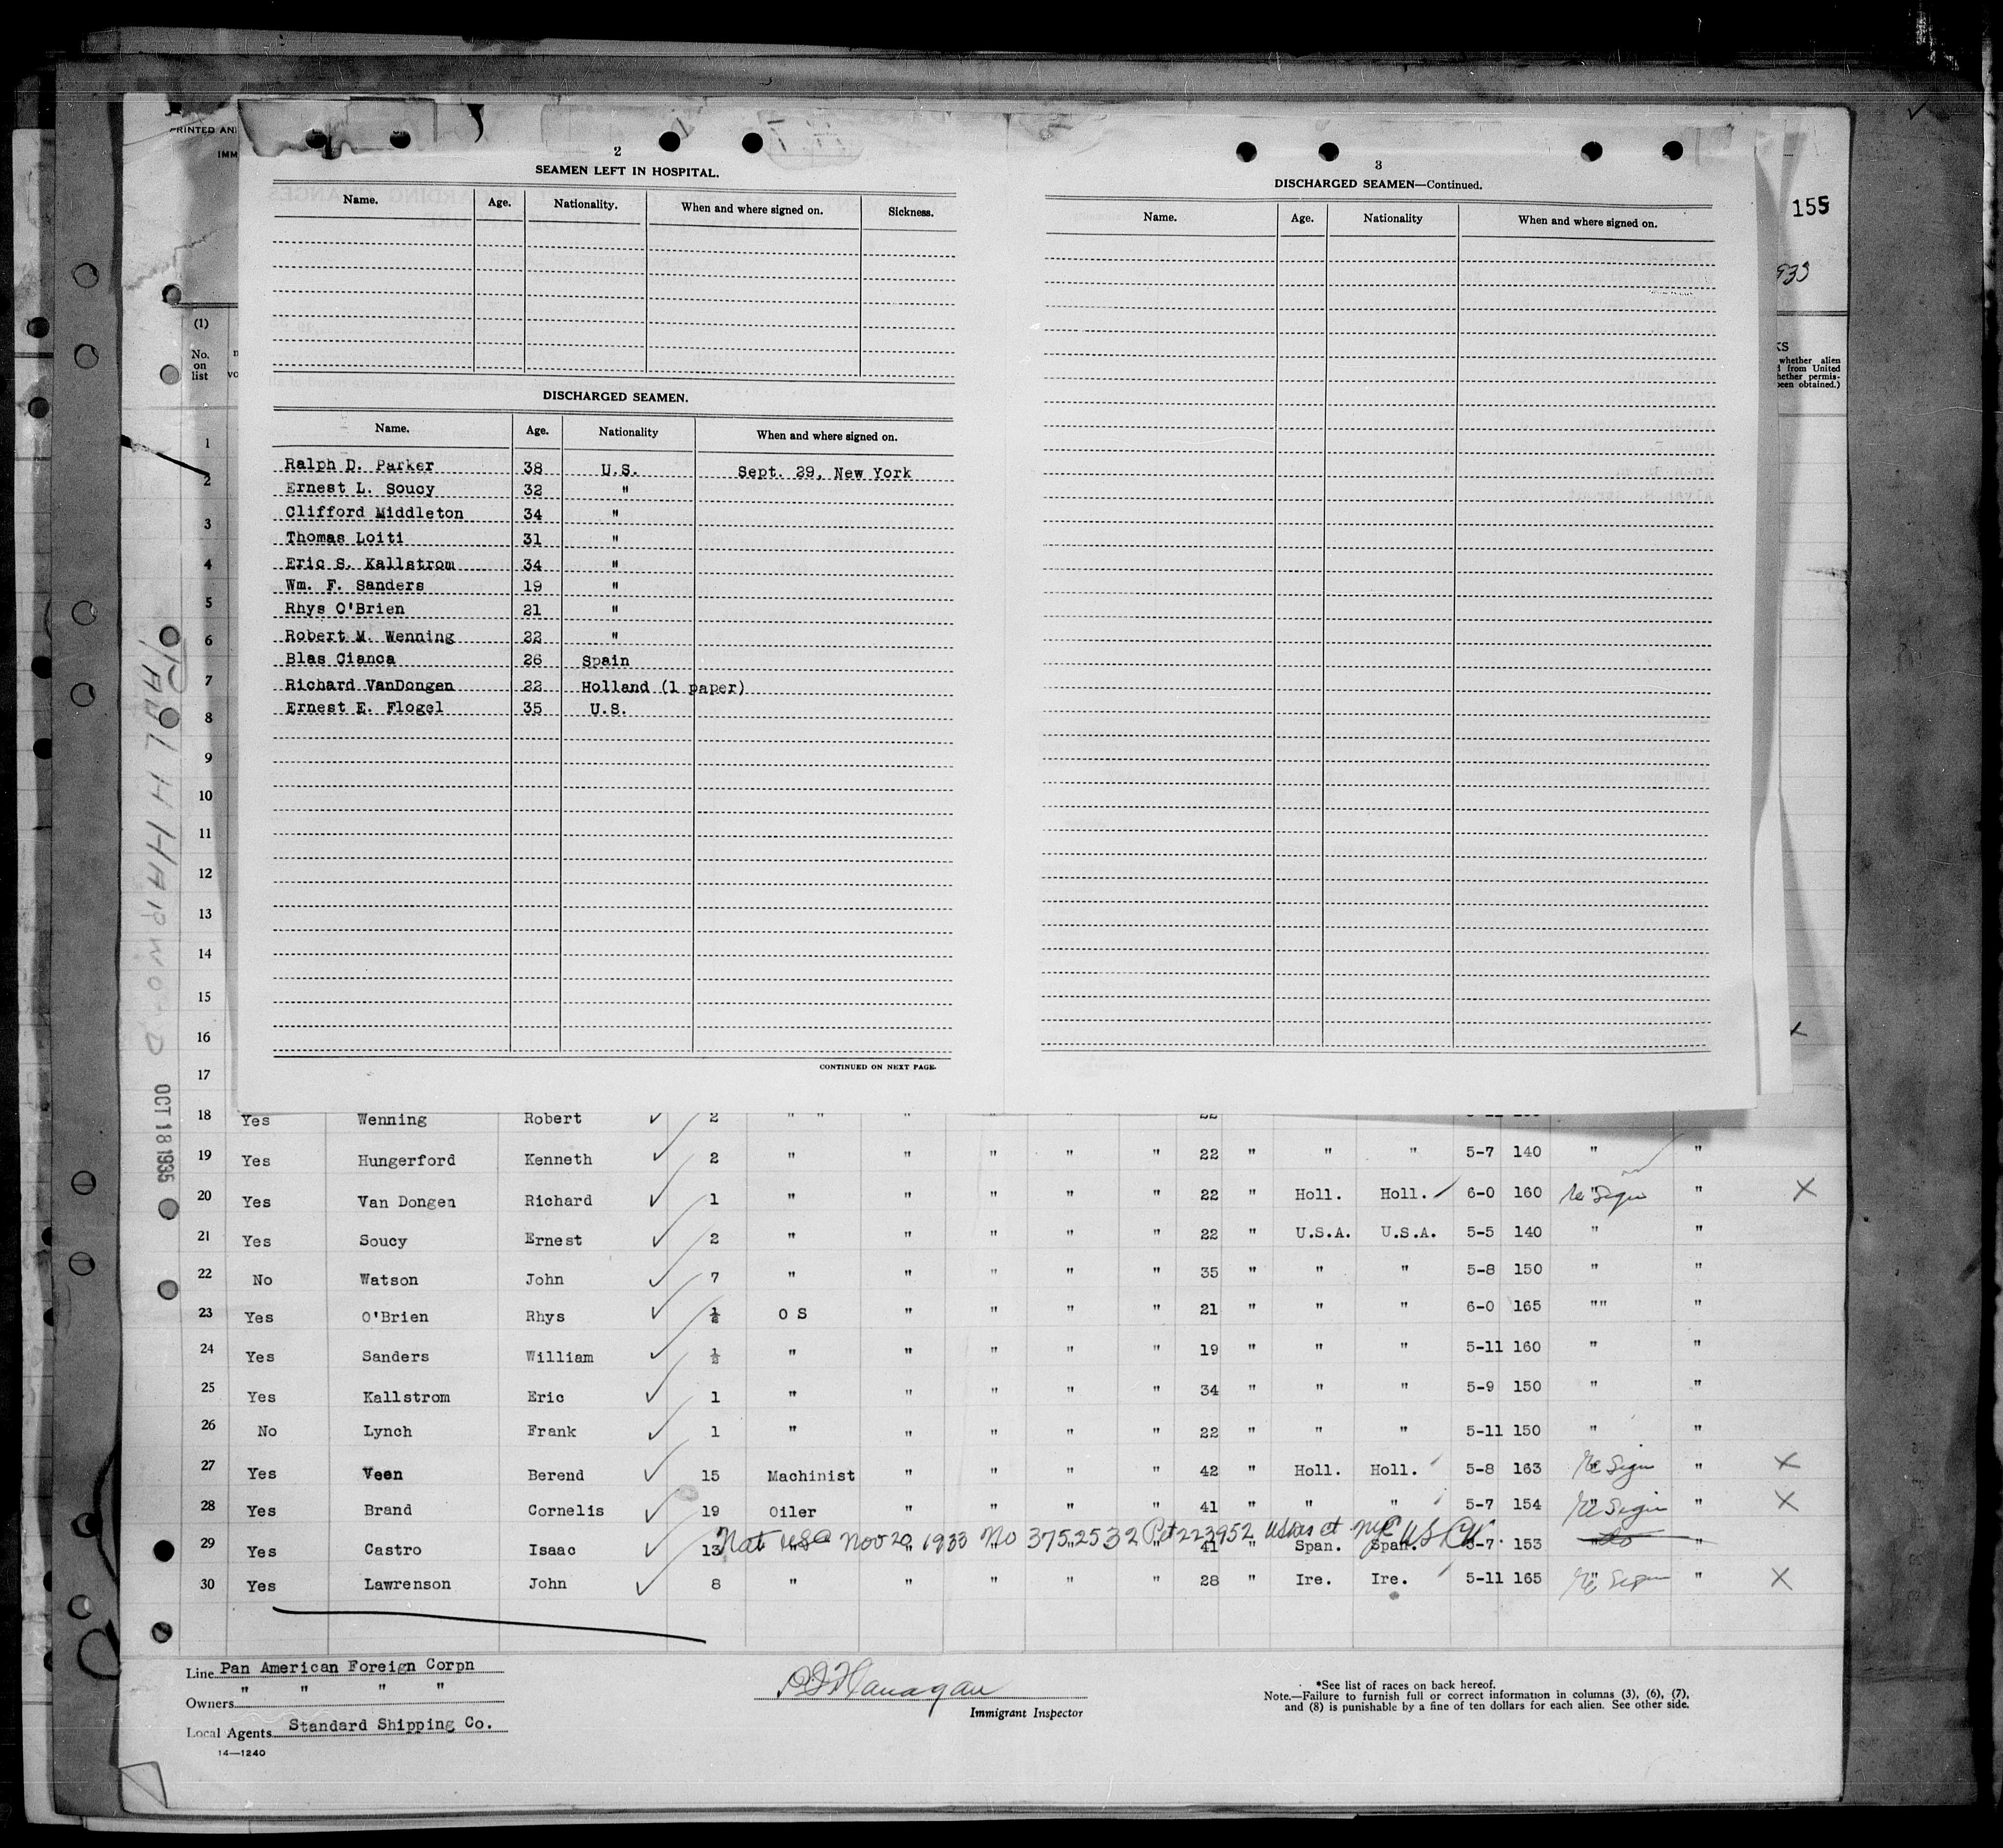 PRINTED AN
IMM
155
933
(1)
No. on list
KS
whether alien
d from United
hether permis-
been obtained.)
2
SEAMEN LEFT IN HOSPITAL.
Name. Age. Nationality. When and where signed on. Sickness.
DISCHARGED SEAMEN.
Name. Age. Nationality When and where signed on.
Ralph D. Parker 38 U.S. Sept. 29, New York
Ernest L. Soucy 32 "
Clifford Middleton 34 "
Thomas Loiti 31 "
Eric S. Kallstrom 34 "
Wm. F. Sanders 19 "
Rhys O'Brien 21 "
Robert M. Wenning 22 "
Blas Cianca 26 Spain
Richard VanDongen 22 Holland (1 paper)
Ernest E. Flogel 35 U.S.
CONTINUED ON NEXT PAGE.
3
DISCHARGED SEAMEN—Continued.
Name. Age. Nationality When and where signed on.
1
2
3
4
5
6
7
8
9
10
11
12
13
14
15
16
17
PAUL H HARWOOD
OCT 18 1935
18 Yes Wenning Robert 2 " " " " " " 22
19 Yes Hungerford Kenneth 2 " " " " " 22 " " " 5-7 140 " "
20 Yes Van Dongen Richard 1 " " " " " 22 " Holl. Holl. 6-0 160 " " X
21 Yes Soucy Ernest 2 " " " " " 22 " U.S.A. U.S.A. 5-5 140 " "
22 No Watson John 7 " " " " " 35 " " " 5-8 150 " "
23 Yes O'Brien Rhys ½ O S " " " " 21 " " " 6-0 165 "" "
24 Yes Sanders William ½ " " " " " 19 " " " 5-11 160 " "
25 Yes Kallstrom Eric 1 " " " " " 34 " " " 5-9 150 " "
26 No Lynch Frank 1 " " " " " 22 " " " 5-11 150 " "
27 Yes Veen Berend 15 Machinist " " " " 42 " Holl. Holl. 5-8 163 " " X
28 Yes Brand Cornelis 19 Oiler " " " " 41 " " " 5-7 154 " " X
Nat USC Nov 20 1933 No 3752532 Pet 223952 NYC US
29 Yes Castro Isaac 13 " " " " " 41 " Span. Span. 5-7 153 " "
30 Yes Lawrenson John 8 " " " " " 28 " Ire. Ire. 5-11 165 " " X
Line Pan American Foreign Corpn
Owners " " " "
Local Agents Standard Shipping Co.
14—1240
Flanagan
Immigrant Inspector
*See list of races on back hereof.
Note.—Failure to furnish full or correct information in columns (3), (6), (7),
and (8) is punishable by a fine of ten dollars for each alien. See other side.